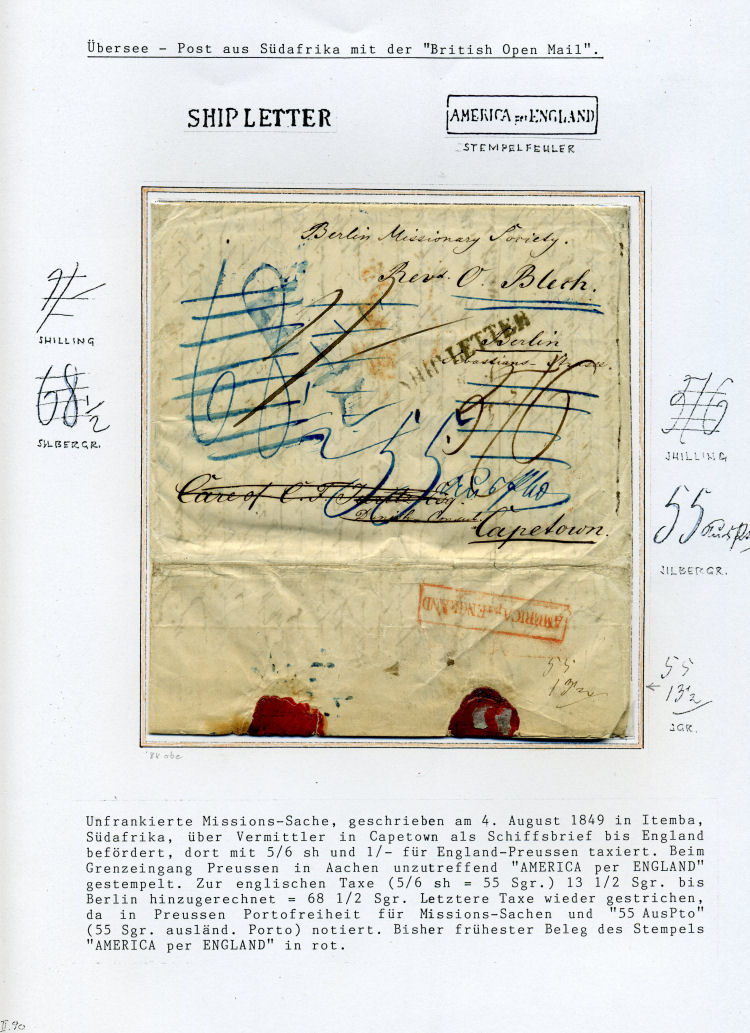 Übersee - Post aus Südafrika mit der "British Open Mail".
SHIP LETTER
AMERICA per ENGLAND
STEMPELFEHLER
Berlin Missionary Society.
Revd. O. Blech.
SHIP LETTER
Berlin
SHILLING
68 1/2
SILBERGR.
5/6
5/6
SHILLING
55
55
Care of C. F.
Capetown.
SILBERGR.
AMERICA per ENGLAND
55
13 1/2
55
13 1/2
SGR.
Unfrankierte Missions-Sache, geschrieben am 4. August 1849 in Itemba,
Südafrika, über Vermittler in Capetown als Schiffsbrief bis England
befördert, dort mit 5/6 sh und 1/- für England-Preussen taxiert. Beim
Grenzeingang Preussen in Aachen unzutreffend "AMERICA per ENGLAND"
gestempelt. Zur englischen Taxe (5/6 sh = 55 Sgr.) 13 1/2 Sgr. bis
Berlin hinzugerechnet = 68 1/2 Sgr. Letztere Taxe wieder gestrichen,
da in Preussen Portofreiheit für Missions-Sachen und "55 AusPto"
(55 Sgr. ausländ. Porto) notiert. Bisher frühester Beleg des Stempels
"AMERICA per ENGLAND" in rot.
II.90